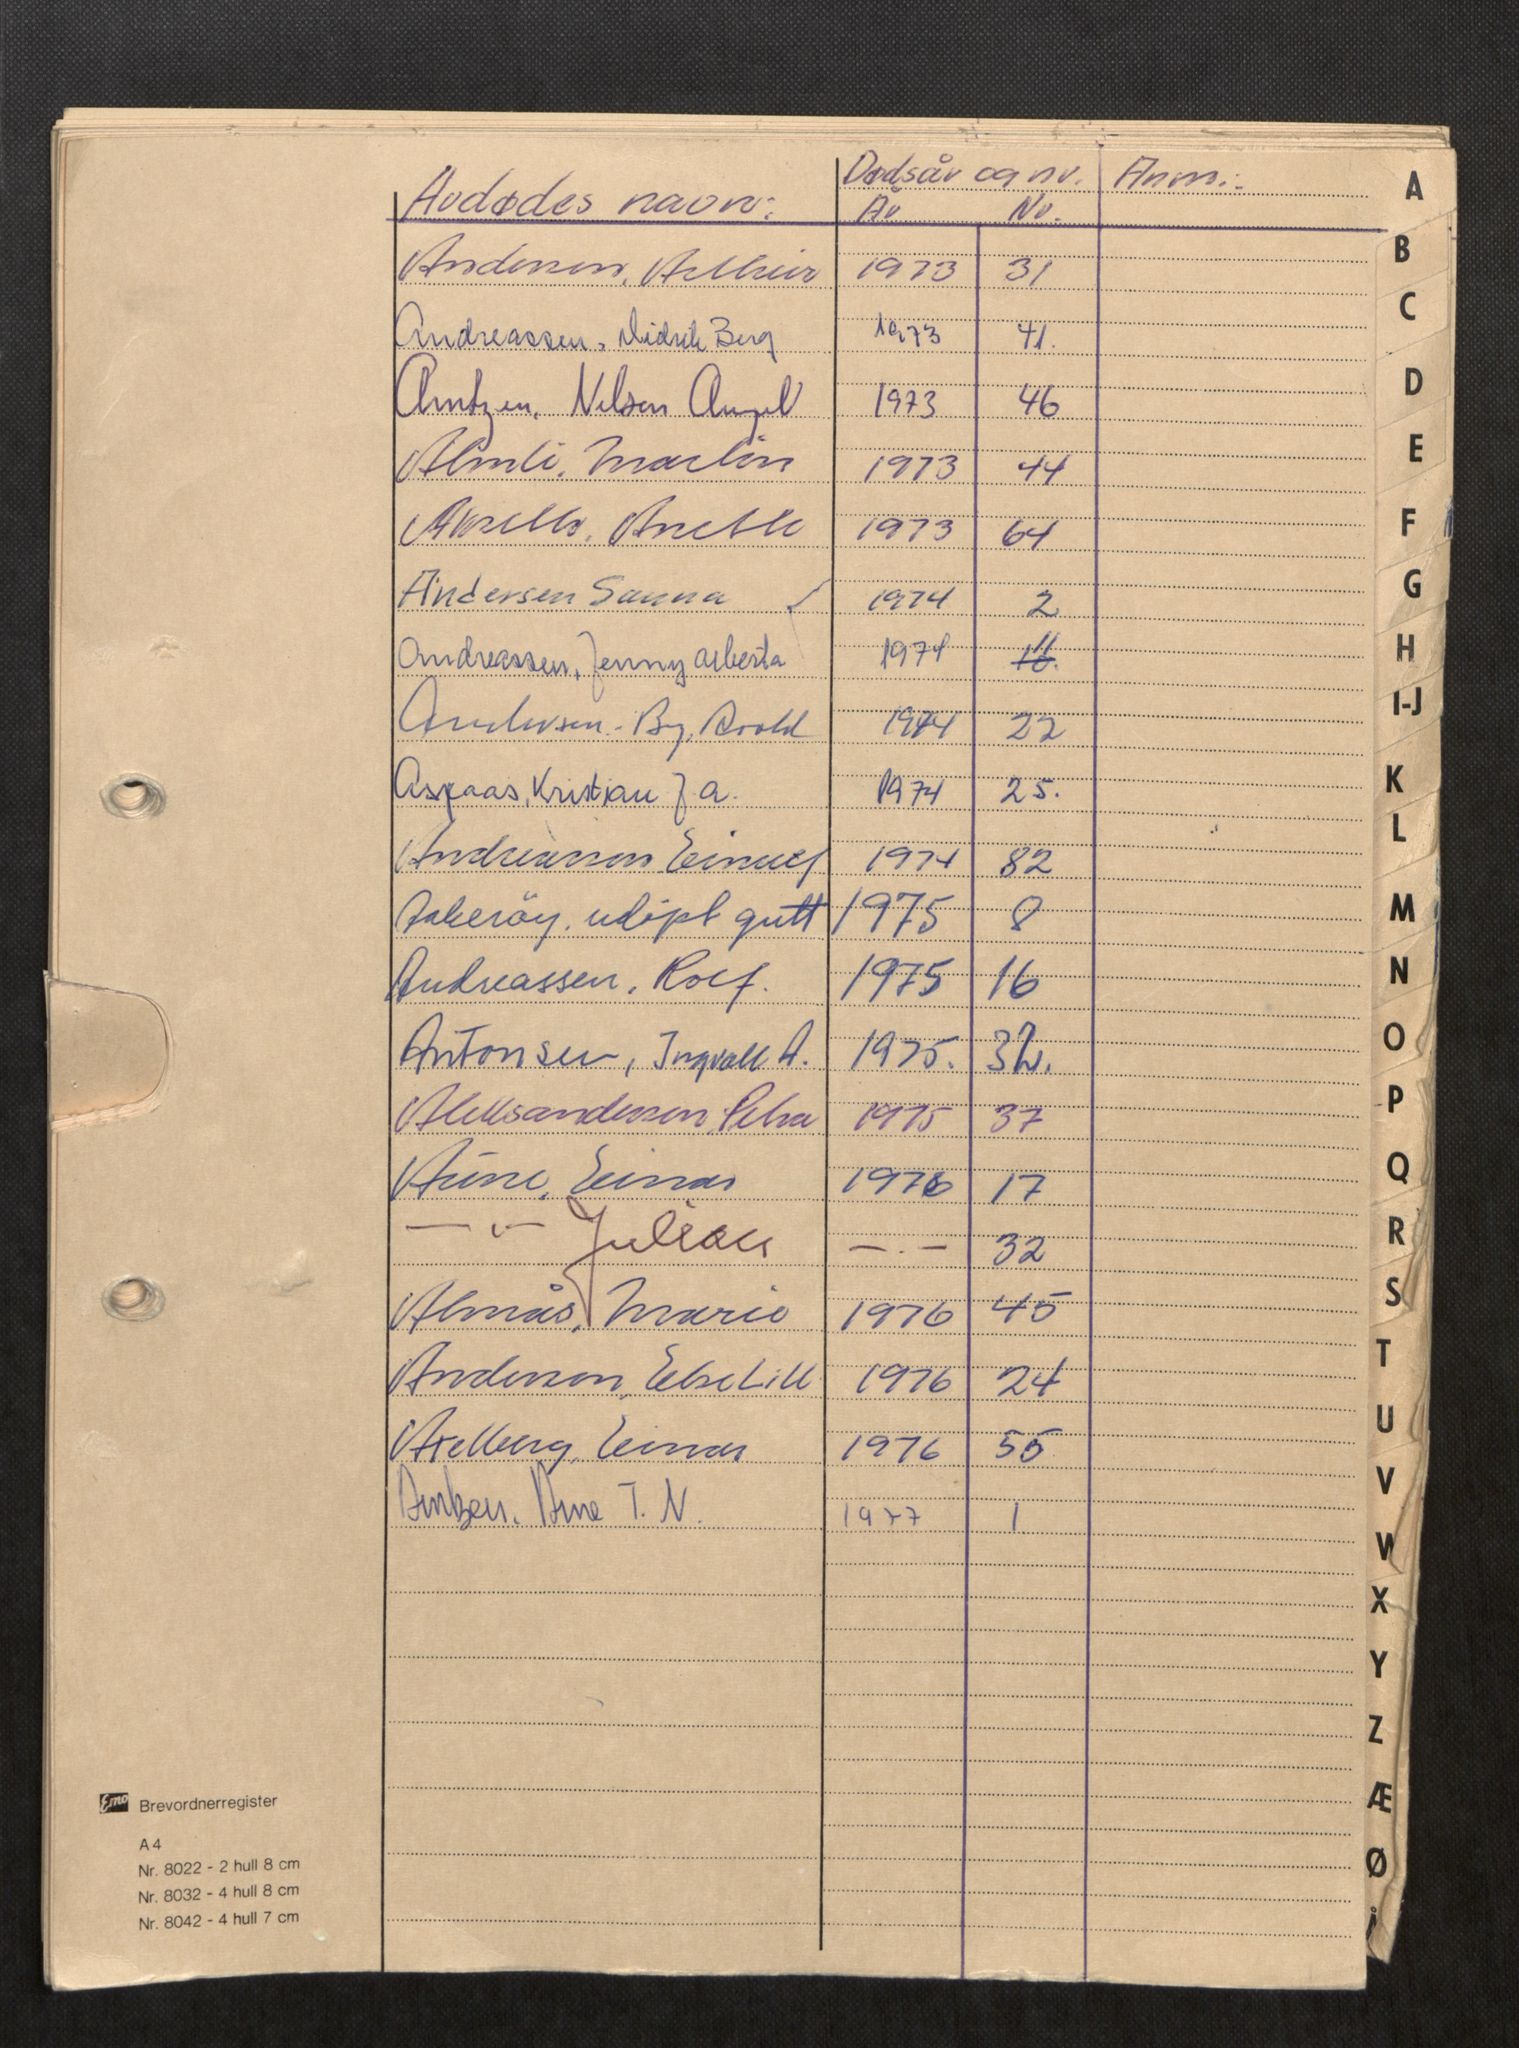 Avdødes navn: Dødsår og nr. Anm:
År Nr.
Andersen, 1973 31
Andreassen, Didrik Berg 1973 41.
Arntzen, Nelson 1973 46
Almli, Martin 1973 44
Anette 1973 64
Andersen Sanna 1974 2
Andreassen, Jenny Alberta 1974 11
Andersen-By, Arold 1974 22
Aspaas, Kristian J A. 1974 25.
Andreassen 1974 82
Aakerøy, udøpt gutt 1975 8
Andreassen, Rolf. 1975 16
Antonsen, Ingvald A. 1975. 32.
Aleksandersen, Petra 1975 37
Aune, Einar 1976 17
— " — Julian — . — 32
Almås, Marie 1976 45
Andersen, Else Lill 1976 24
Axelberg, Einar 1976 55
Arntzen, Arne T. N. 1977 1
A
B
C
D
E
F
G
H
I-J
K
L
M
N
O
P
Q
R
S
T
U
V
W
X
Y
Z
Æ
Ø
Å
Emo Brevordnerregister
A 4
Nr. 8022 - 2 hull 8 cm
Nr. 8032 - 4 hull 8 cm
Nr. 8042 - 4 hull 7 cm